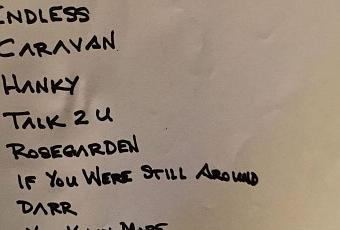 ENDLESS
CARAVAN
HANKY
TALK 2 U
ROSEGARDEN
IF YOU WERE STILL AROUND
DARR